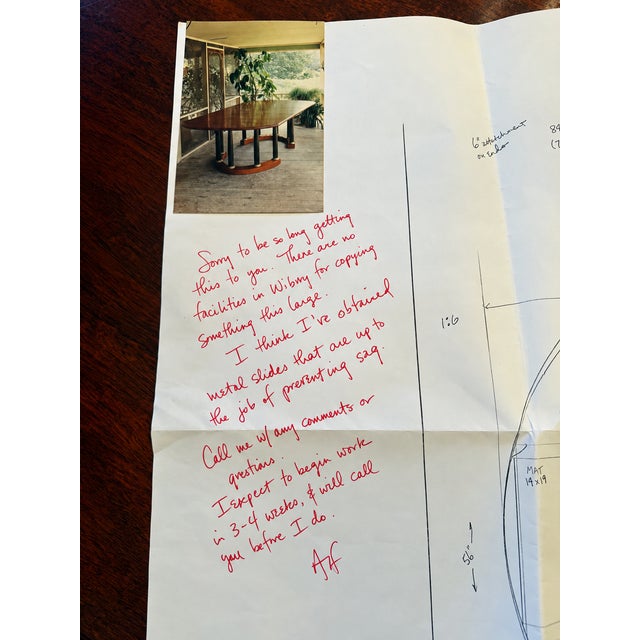 Sorry to be so long getting
this to you. There are no
facilities in Wibmy for copying
something this large.
I think I've obtained
metal slides that are up to
the job of preventing sag.
Call me w/ any comments or
questions.
I expect to begin work
in 3-4 weeks, & will call
you before I do.
AF
6" attachment
on
84
(7
1:6
MAT
14 x 19
56"